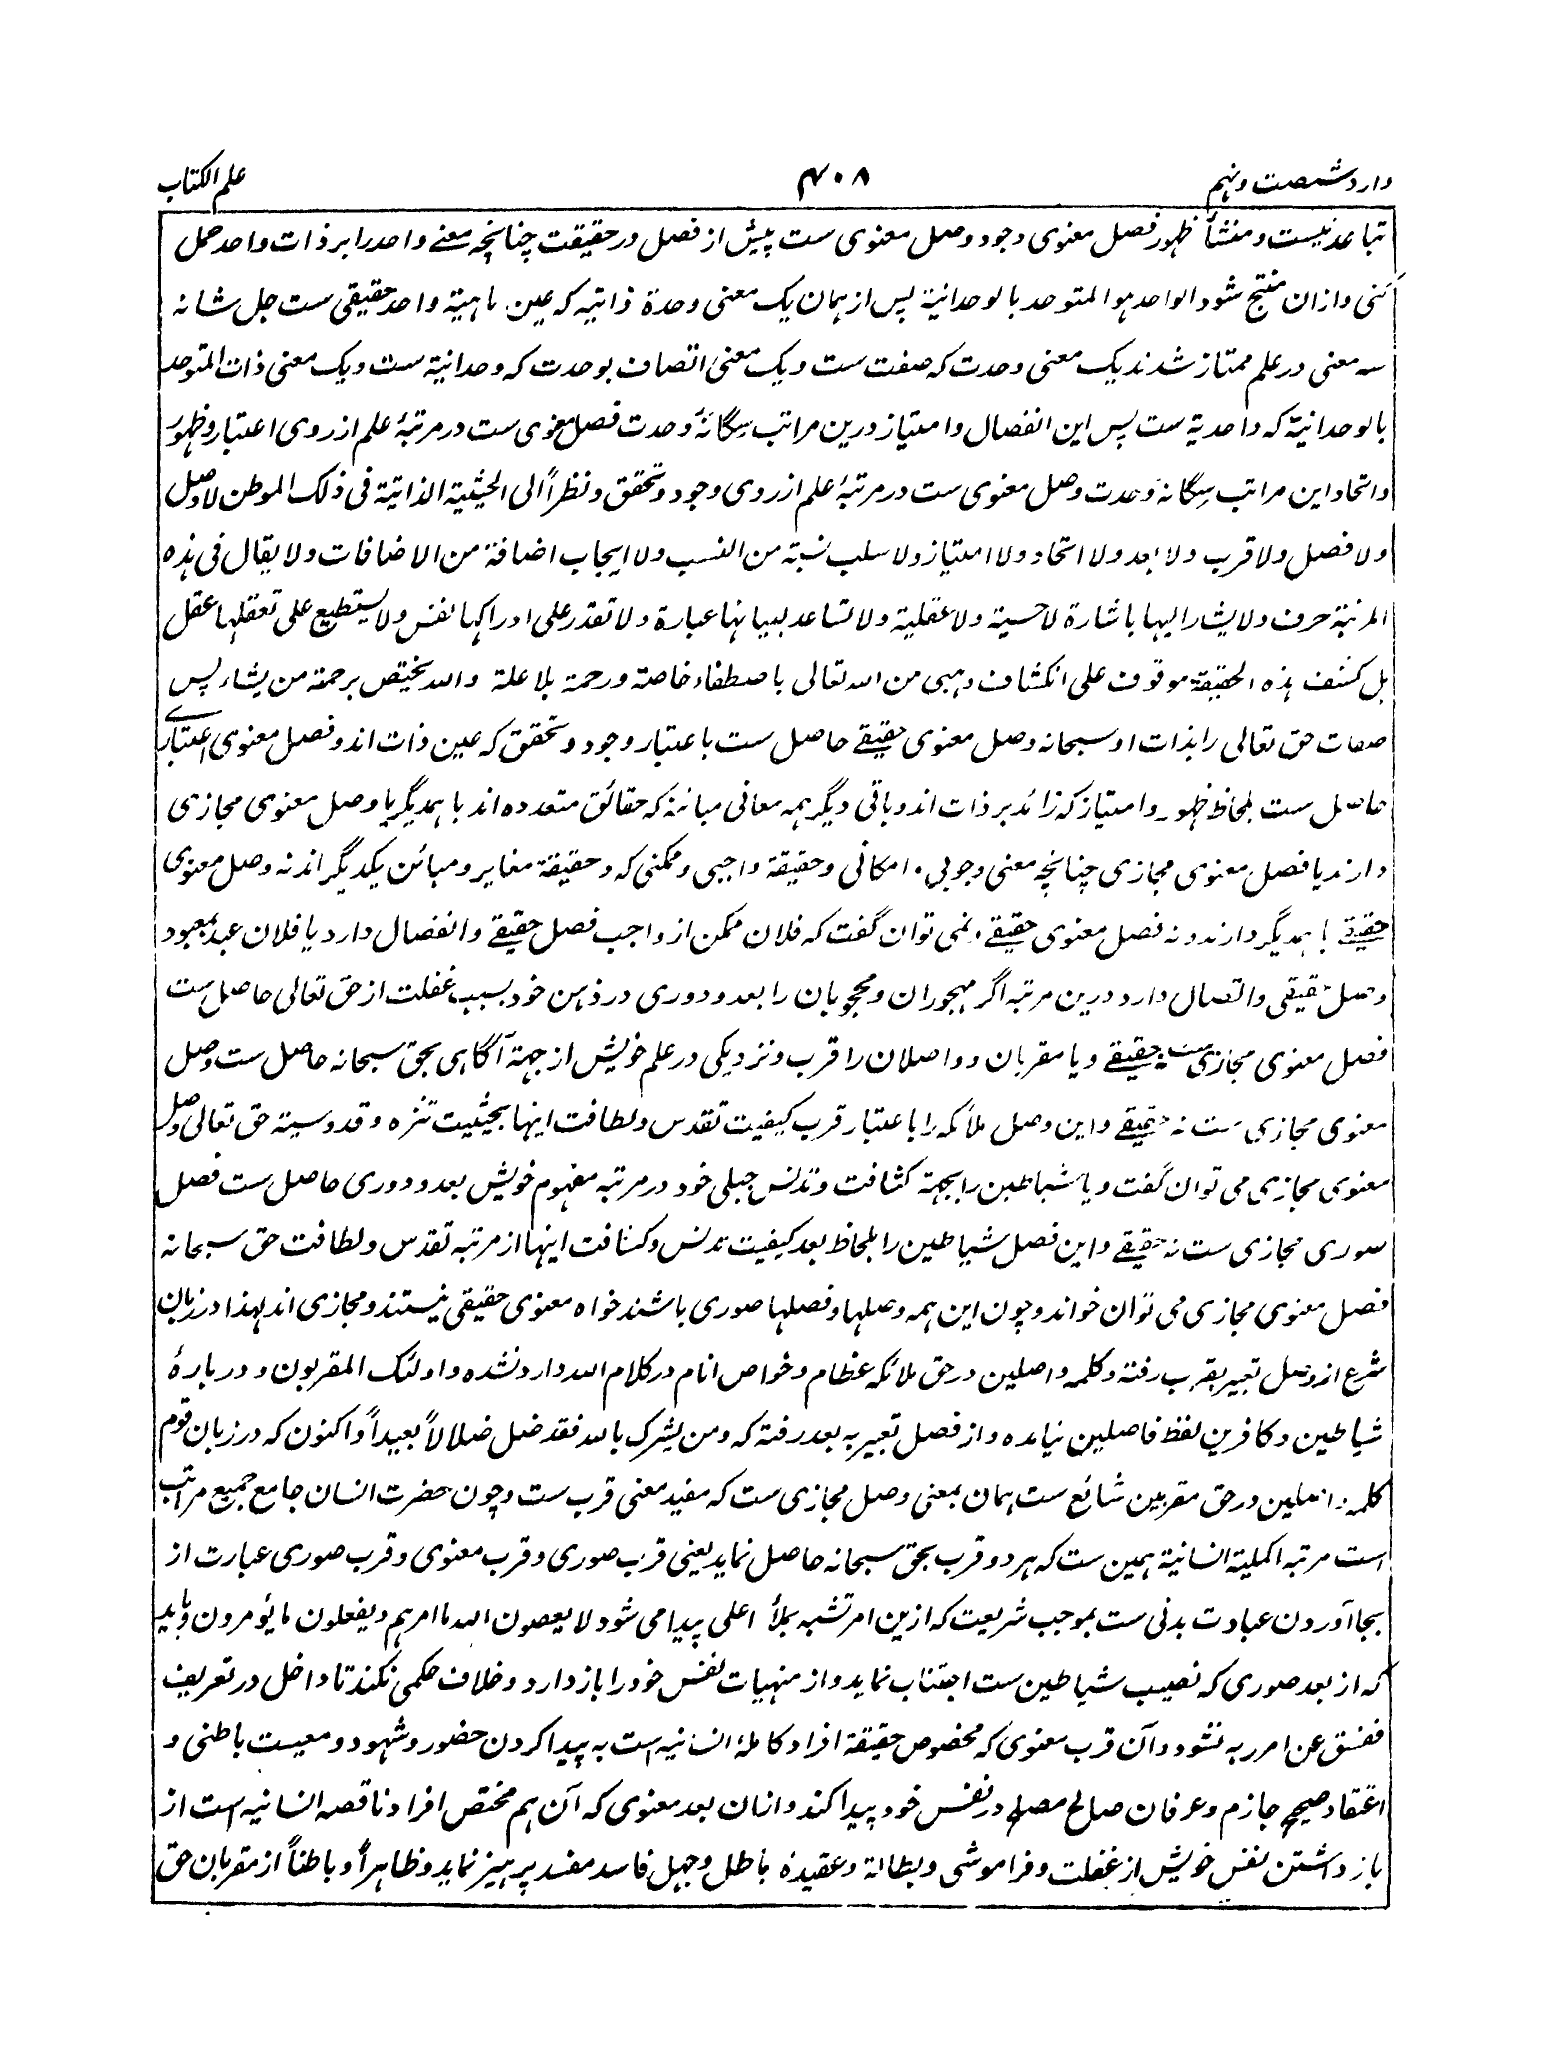 وارد شصت و نہم
۴۰۸
علم الکتاب
تباعد نیست و منشأ ظہور فصل معنوی وجود وصل معنوی ست پیش از فصل در حقیقت چنانچہ معنے واحد را بر ذات واحد حمل
کنی و ازان منتج شود الواحد ہو المتوحد بالوحدانیۃ پس از ہمان یک معنی وحدۃ ذاتیہ کہ عین ماہیۃ واحد حقیقی ست جل شانہ
سہ معنی در علم ممتاز شدند یک معنی وحدت کہ صفت ست و یک معنی اتصاف بوحدت کہ وحدانیۃ ست و یک معنی ذات المتوحد
بالوحدانیۃ کہ واحدیۃ ست پس این انفصال و امتیاز درین مراتب سگانۂ وحدت فصل معنوی ست در مرتبۂ علم از روی اعتبار و ظہور
و اتحاد این مراتب سگانۂ وحدت وصل معنوی ست در مرتبۂ علم از روی وجود و تحقق و نظراً الی الحیثیۃ الذاتیۃ فی ذلک الموطن لا وصل
ولا فصل ولا قرب ولا بعد ولا اتحاد ولا امتیاز ولا سلب نسبۃ من النسب ولا ایجاب اضافۃ من الاضافات ولا یقال فی ہذہ
المرتبۃ حرف ولا یشار الیہا باشارۃ لا حسیۃ ولا عقلیۃ ولا تساعد لبیانہا عبارۃ ولا تقدر علی ادراکہا نفس ولا یستطیع علی تعقلہا عقل
بل کشف ہذہ الحقیقۃ موقوف علی انکشاف وہبی من اللہ تعالی باصطفاء خاصۃ ورحمۃ بلا علۃ واللہ یختص برحمتہ من یشاء پس
صفات حق تعالی را بذات او سبحانہ وصل معنوی حقیقے حاصل ست باعتبار وجود و تحقق کہ عین ذات اند و فصل معنوی اعتبارے
حاصل ست بلحاظ ظہور و امتیاز کہ زائد بر ذات اند و باقی دیگر ہمہ معانی مبائنۃ کہ حقائق متعددہ اند باہمدیگر یا وصل معنوی مجازی
دارند یا فصل معنوی مجازی چنانچہ معنی وجوبی و امکانی و حقیقۃ واجبی و ممکنی کہ دو حقیقۃ مغایر و مبائن یکدیگر اند نہ وصل معنوی
حقیقے باہمدیگر دارند و نہ فصل معنوی حقیقے و نمی توان گفت کہ فلان ممکن از واجب فصل حقیقے و انفصال دارد یا فلان عبد بمعبود
وصل حقیقی و اتصال دارد درین مرتبہ اگر مہجوران و محجوبان را بعد و دوری در ذہن خود بسبب غفلت از حق تعالی حاصل ست
فصل معنوی مجازی ست نہ حقیقے و یا مقربان و واصلان را قرب و نزدیکی در علم خویش از جہۃ آگاہی بحق سبحانہ حاصل ست وصل
معنوی مجازی ست نہ حقیقے و این وصل ملائکہ را باعتبار قرب کیفیت تقدس و لطافت اینہا بحیثیت تنزہ و قدوسیۃ حق تعالی وصل
معنوی مجازی می توان گفت و یا شیاطین را بجہۃ کثافت و تدنس جبلی خود در مرتبہ مفہوم خویش بعد و دوری حاصل ست فصل
صوری مجازی ست نہ حقیقے و این فصل شیاطین را بلحاظ بعد کیفیت تدنس و کثافت اینہا از مرتبہ تقدس و لطافت حق سبحانہ
فصل معنوی مجازی می توان خواند و چون این ہمہ وصلہا و فصلہا صوری باشند خواہ معنوی حقیقی نیستند و مجازی اند لہذا در زبان
شرع از وصل تعبیر بقرب رفتہ و کلمہ واصلین در حق ملائکہ عظام و خواص انام در کلام اللہ وارد نشدہ و اولئک المقربون و دربارۂ
شیاطین و کافرین لفظ فاصلین نیامدہ و از فصل تعبیر بہ بعد رفتہ کہ ومن یشرک باللہ فقد ضل ضلالاً بعیداً و اکنون کہ در زبان قوم
کلمہ واصلین در حق مقربین شائع ست ہمان بمعنی وصل مجازی ست کہ مفید معنی قرب ست و چون حضرت انسان جامع جمیع مراتب
است مرتبہ اکملیۃ انسانیۃ ہمین ست کہ ہر دو قرب بحق سبحانہ حاصل نماید یعنی قرب صوری و قرب معنوی و قرب صوری عبارت از
بجا آوردن عبادت بدنی ست بموجب شریعت کہ ازین امر تشبہ بملأ اعلی پیدا می شود لا یعصون اللہ ما امرہم ویفعلون ما یؤمرون و باید
کہ از بعد صوری کہ نصیب شیاطین ست اجتناب نماید و از منہیات نفس خود را باز دارد و خلاف حکمی نکند تا داخل در تعریف
ففسق عن امر ربہ نشود و آن قرب معنوی کہ مخصوص حقیقۃ افراد کاملۂ انسانیہ است بہ پیدا کردن حضور و شہود و معیت باطنی و
اعتقاد صحیح جازم و عرفان صالح مصلح در نفس خود پیدا کند و ازان بعد معنوی کہ آن ہم مختص افراد ناقصہ انسانیہ است از
باز داشتن نفس خویش از غفلت و فراموشی و بطالۃ و عقیدۂ باطل و جہل فاسد مفسد پرہیز نماید و ظاہراً و باطناً از مقربان حق